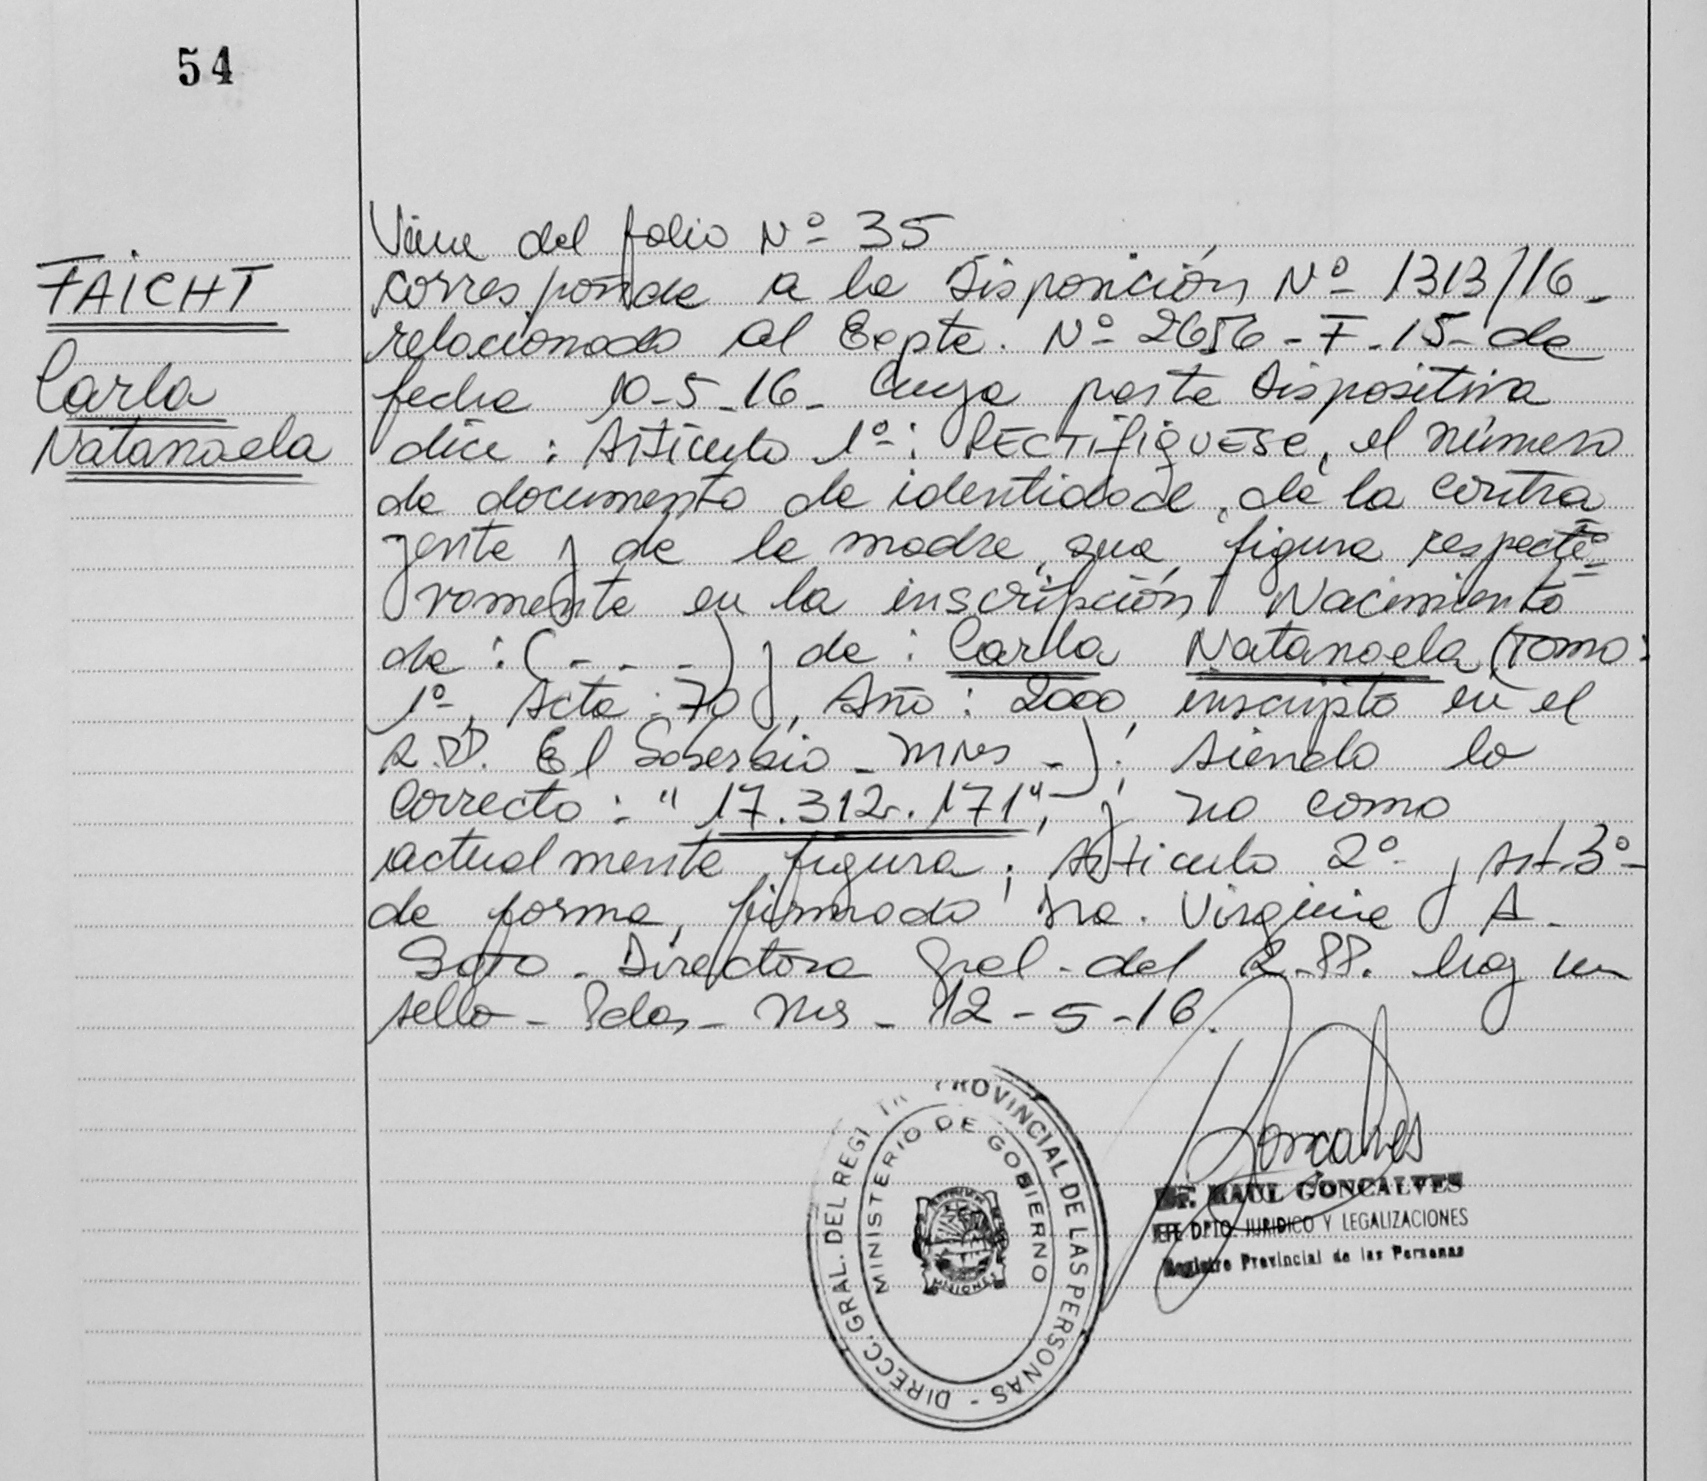 54
FAICHT
Carla
Natanaela
Viene del folio Nº 35
corresponde a la Disposición Nº 1313/16-
relacionado al Expte. Nº 2656-F-15- de
fecha 10-5-16- Cuya parte Dispositiva
dice: Artículo 1º: RECTIFIQUESE, el número
de documento de identidad, de la contra
yente y de la madre, que figura respecti
vamente en la inscripción Nacimiento
de: (- - -) y de: Carla Natanaela (Tomo:
1º, Acta: 70, Año: 2000, inscripto en el
R.PP. El Soberbio - Mnes -); siendo lo
Correcto: "17.312.171", y no como
actualmente figura; Artículo 2º y Art. 3º-
de forma, firmado Dra. Virginia A.
Soto. Directora Gral. del R.PP. hay un
sello - Pdas - Mns - 12-5-16.
DIRECC. GRAL. DEL REGI TR PROVINCIAL DE LAS PERSONAS -
MINISTERIO DE GOBIERNO
MISIONES
Goncalves
Dr. RAUL GONCALVES
JEFE DPTO. JURIDICO Y LEGALIZACIONES
Registro Provincial de las Personas